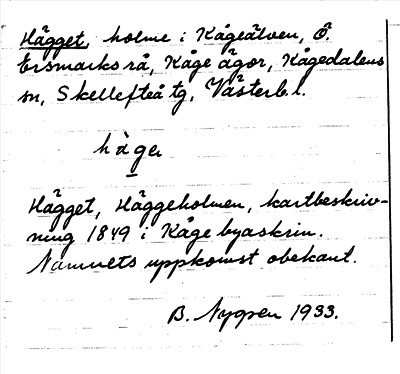 Hägget, holme i Kågeälven, Ö.
Ersmarks rå, Kåge ägor, Kågedalens
sn, Skellefteå tg, Västerb. l.
hàge
Hägget, Häggeholmen, kartbeskriv-
ning 1849 i Kåge byaskrin.
Namnets uppkomst obekant.
B. Nygren 1933.